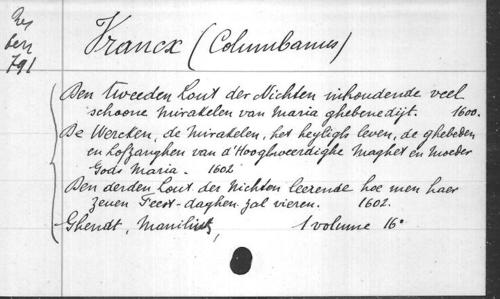 Res
Acc
791
Vrancx (Columbanus)
Den tweeden Cout der Nichten inhoudende veel
schoone mirakelen van Maria ghebenedijt. 1600.
De Wercken, de mirakelen, het heyligh leven, de ghebeden
en Lofzanghen van d'Hooghweerdighe Maghet en Moeder
Gods Maria. 1602
Den derden Cout der Nichten leerende hoe men haer
zeven Feest-daghen zal vieren. 1602.
Ghendt, Manilius, 1 volume 16°